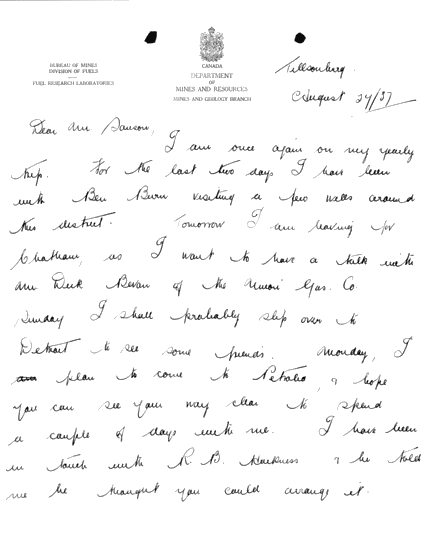 BUREAU OF MINES
DIVISION OF FUELS
FUEL RESEARCH LABORATORIES
CANADA
DEPARTMENT
OF
MINES AND RESOURCES
MINES AND GEOLOGY BRANCH
Tillsonburg.
August 27/37
Dear Mr Sanson,
I am once again on my yearly
trip. For the last two days I have been
with Ben visiting a few wells around
this district. Tomorrow I am leaving for
Chatham, as I want to have a talk with
Mr Dick Bevan of the Union Gas. Co.
Sunday I shall probably slip over to
Detroit to see some friends. Monday, I
plan to come to Petrolia, & hope
you can see your way clear to spend
a couple of days with me. I have been
in touch with R. B. Harkness & he told
me he thought you could arrange it.